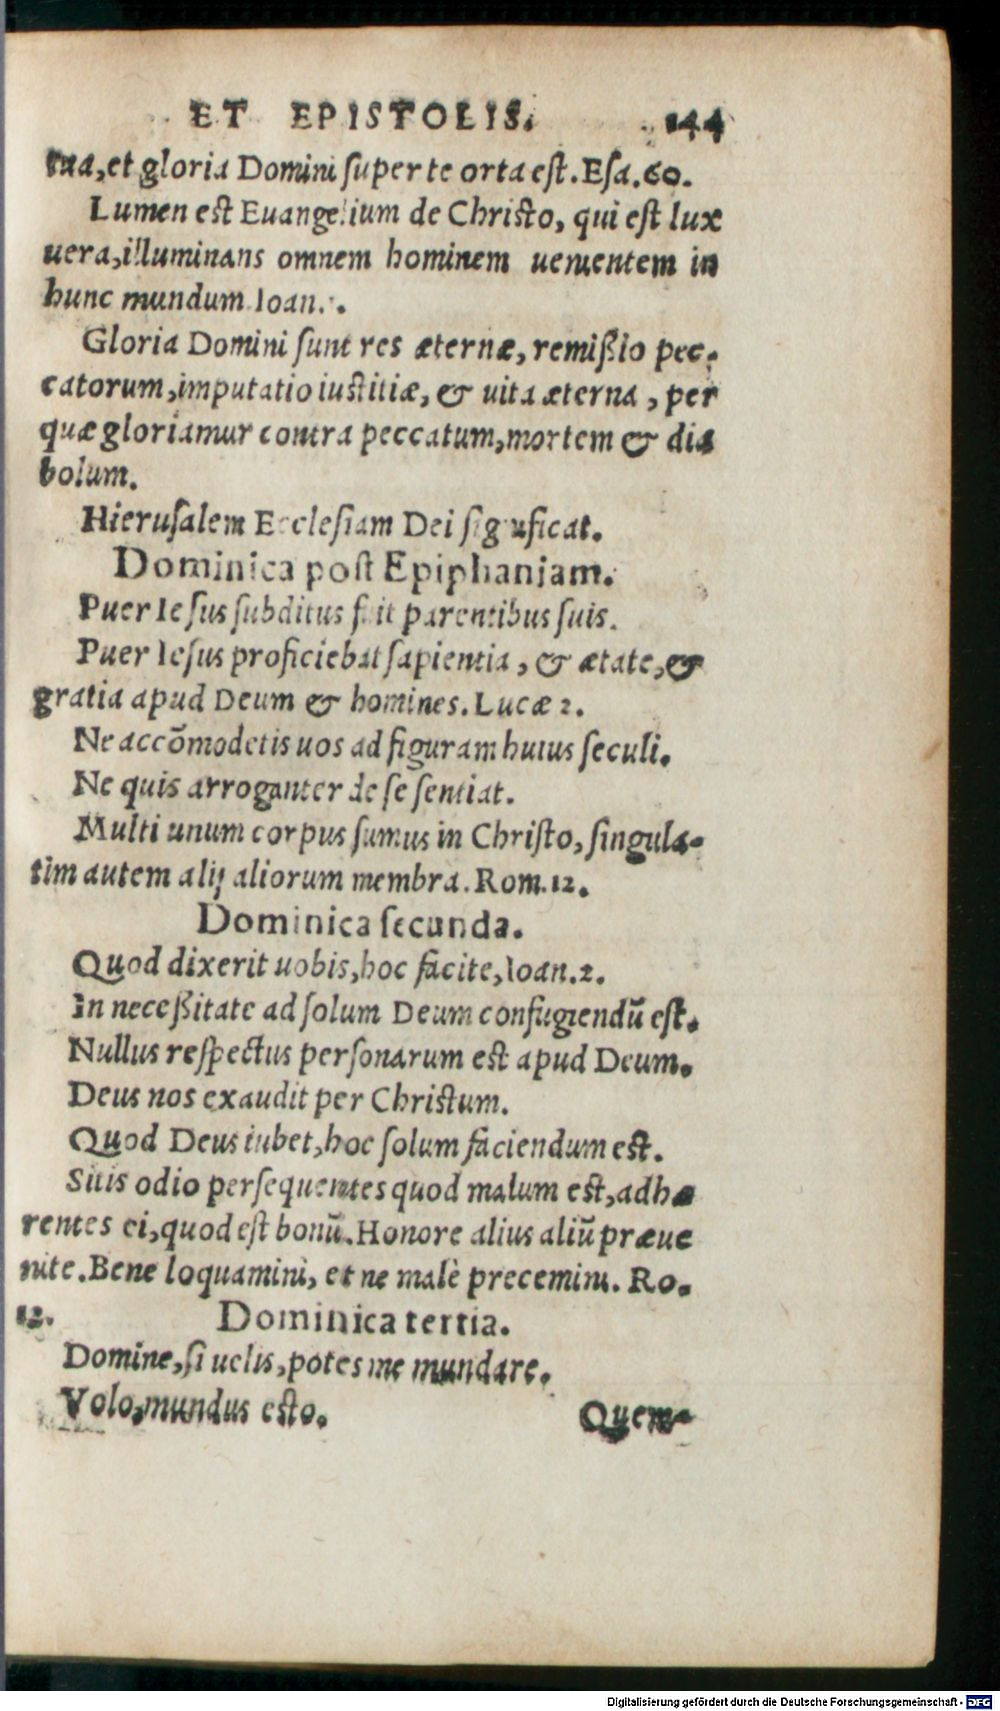 ET EPISTOLIS. 144
tua,et gloria Domini super te orta est. Esa.60.
Lumen est Euangelium de Christo, qui est lux
uera,illuminans omnem hominem uenientem in
hunc mundum Ioan.
Gloria Domini sunt res æternæ, remißio pec-
catorum,imputatio iustitiæ, & uita æterna, per
quæ gloriamur contra peccatum,mortem & dia
bolum.
Hierusalem Ecclesiam Dei significat.
Dominica post Epiphaniam.
Puer Iesus subditus fuit parentibus suis.
Puer Iesus proficiebat sapientia, & ætate,&
gratia apud Deum & homines. Lucæ 2.
Ne accõmodetis uos ad figuram huius seculi.
Ne quis arroganter de se sentiat.
Multi unum corpus sumus in Christo, singula-
tim autem alij aliorum membra. Rom.12.
Dominica secunda.
Quod dixerit uobis,hoc facite,Ioan.2.
In neceßitate ad solum Deum confugiendũ est.
Nullus respectus personarum est apud Deum.
Deus nos exaudit per Christum.
Quod Deus iubet,hoc solum faciendum est.
Sitis odio persequentes quod malum est,adhæ
rentes ei,quod est bonũ.Honore alius aliũ præue
nite.Bene loquamini, et ne malè precemini. Ro.
12. Dominica tertia.
Domine,si uelis,potes me mundare.
Volo,mundus esto. Quem-
Digitalisierung gefördert durch die Deutsche Forschungsgemeinschaft - DFG